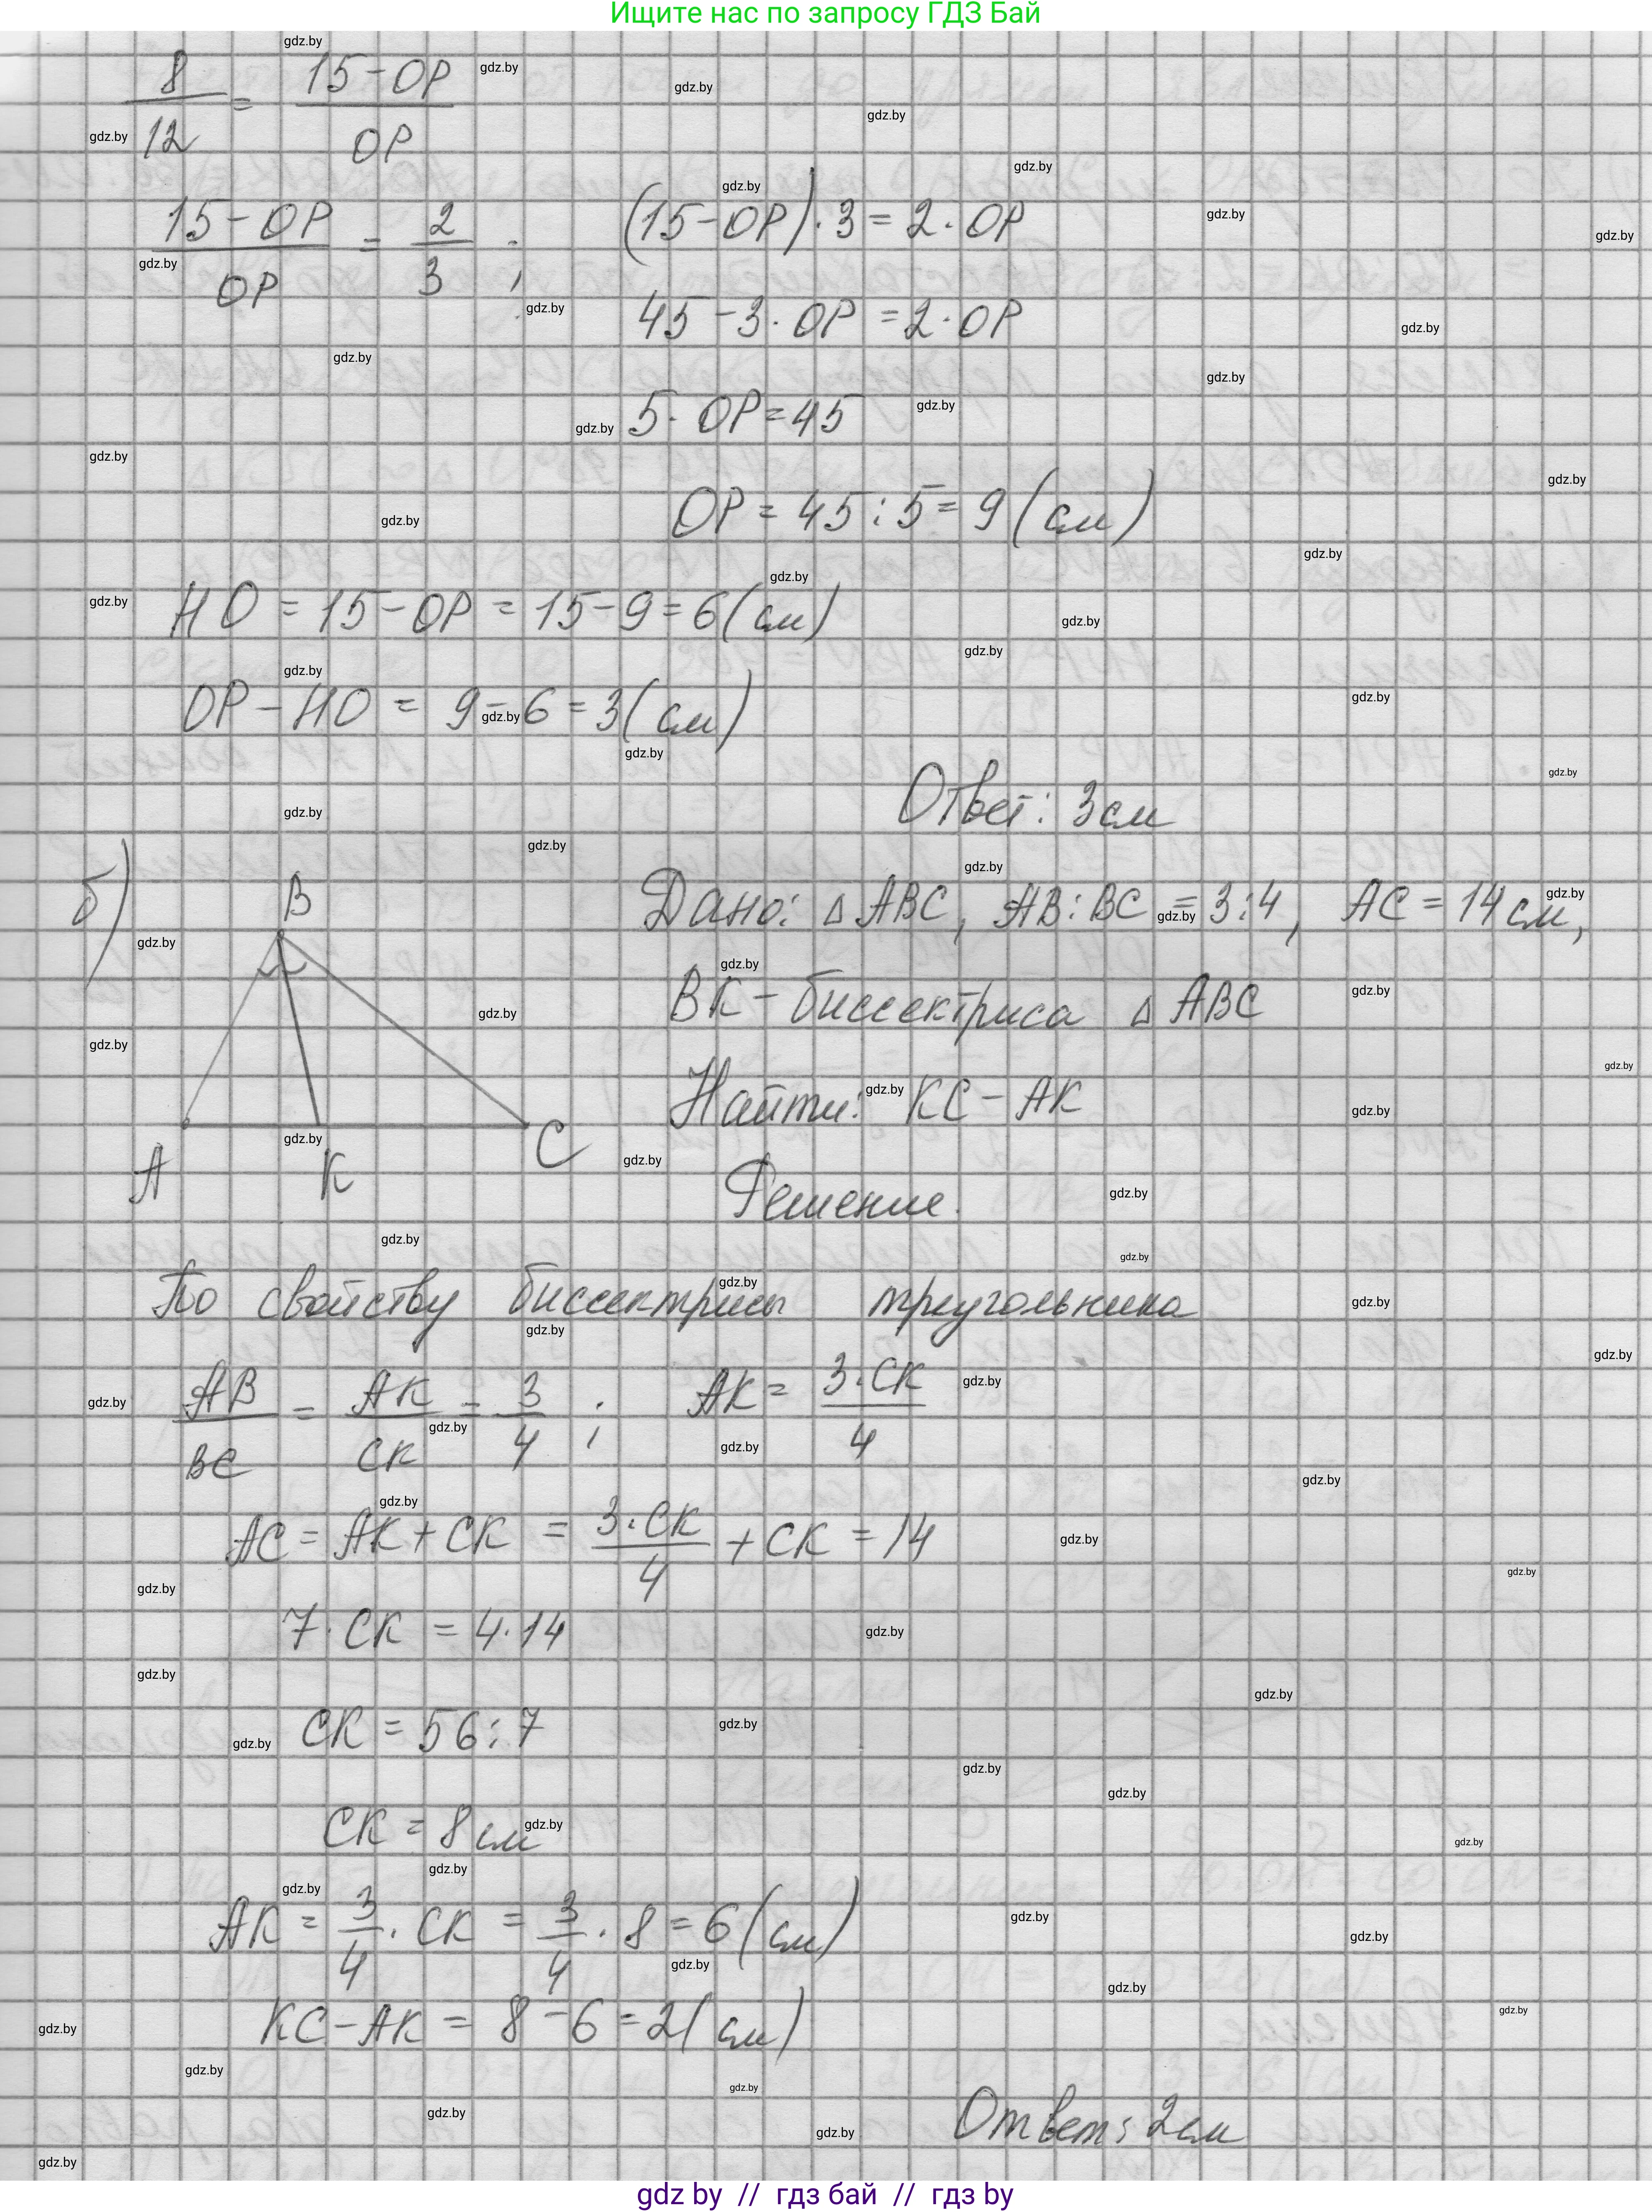 Ищите нас по запросу ГДЗ Бай
8/12 = (15-OP)/OP
(15-OP)/OP = 2/3 ; (15-OP)·3 = 2·OP
45-3·OP = 2·OP
5·OP=45
OP = 45:5 = 9 (см)
HO = 15-OP = 15-9=6(см)
OP-HO = 9-6=3(см)
Ответ: 3см
б)
B
A
K
C
Дано: △ABC, AB:BC = 3:4, AC = 14см,
BK - биссектриса △ABC
Найти: KC-AK
Решение.
По свойству биссектрисы треугольника
AB/BC = AK/CK = 3/4 ; AK = 3·CK/4
AC = AK+CK = 3·CK/4 + CK = 14
7·CK = 4·14
CK = 56:7
CK = 8см
AK = 3/4·CK = 3/4·8=6(см)
KC-AK = 8-6=2(см)
Ответ: 2см
gdz by // гдз бай // гдз by